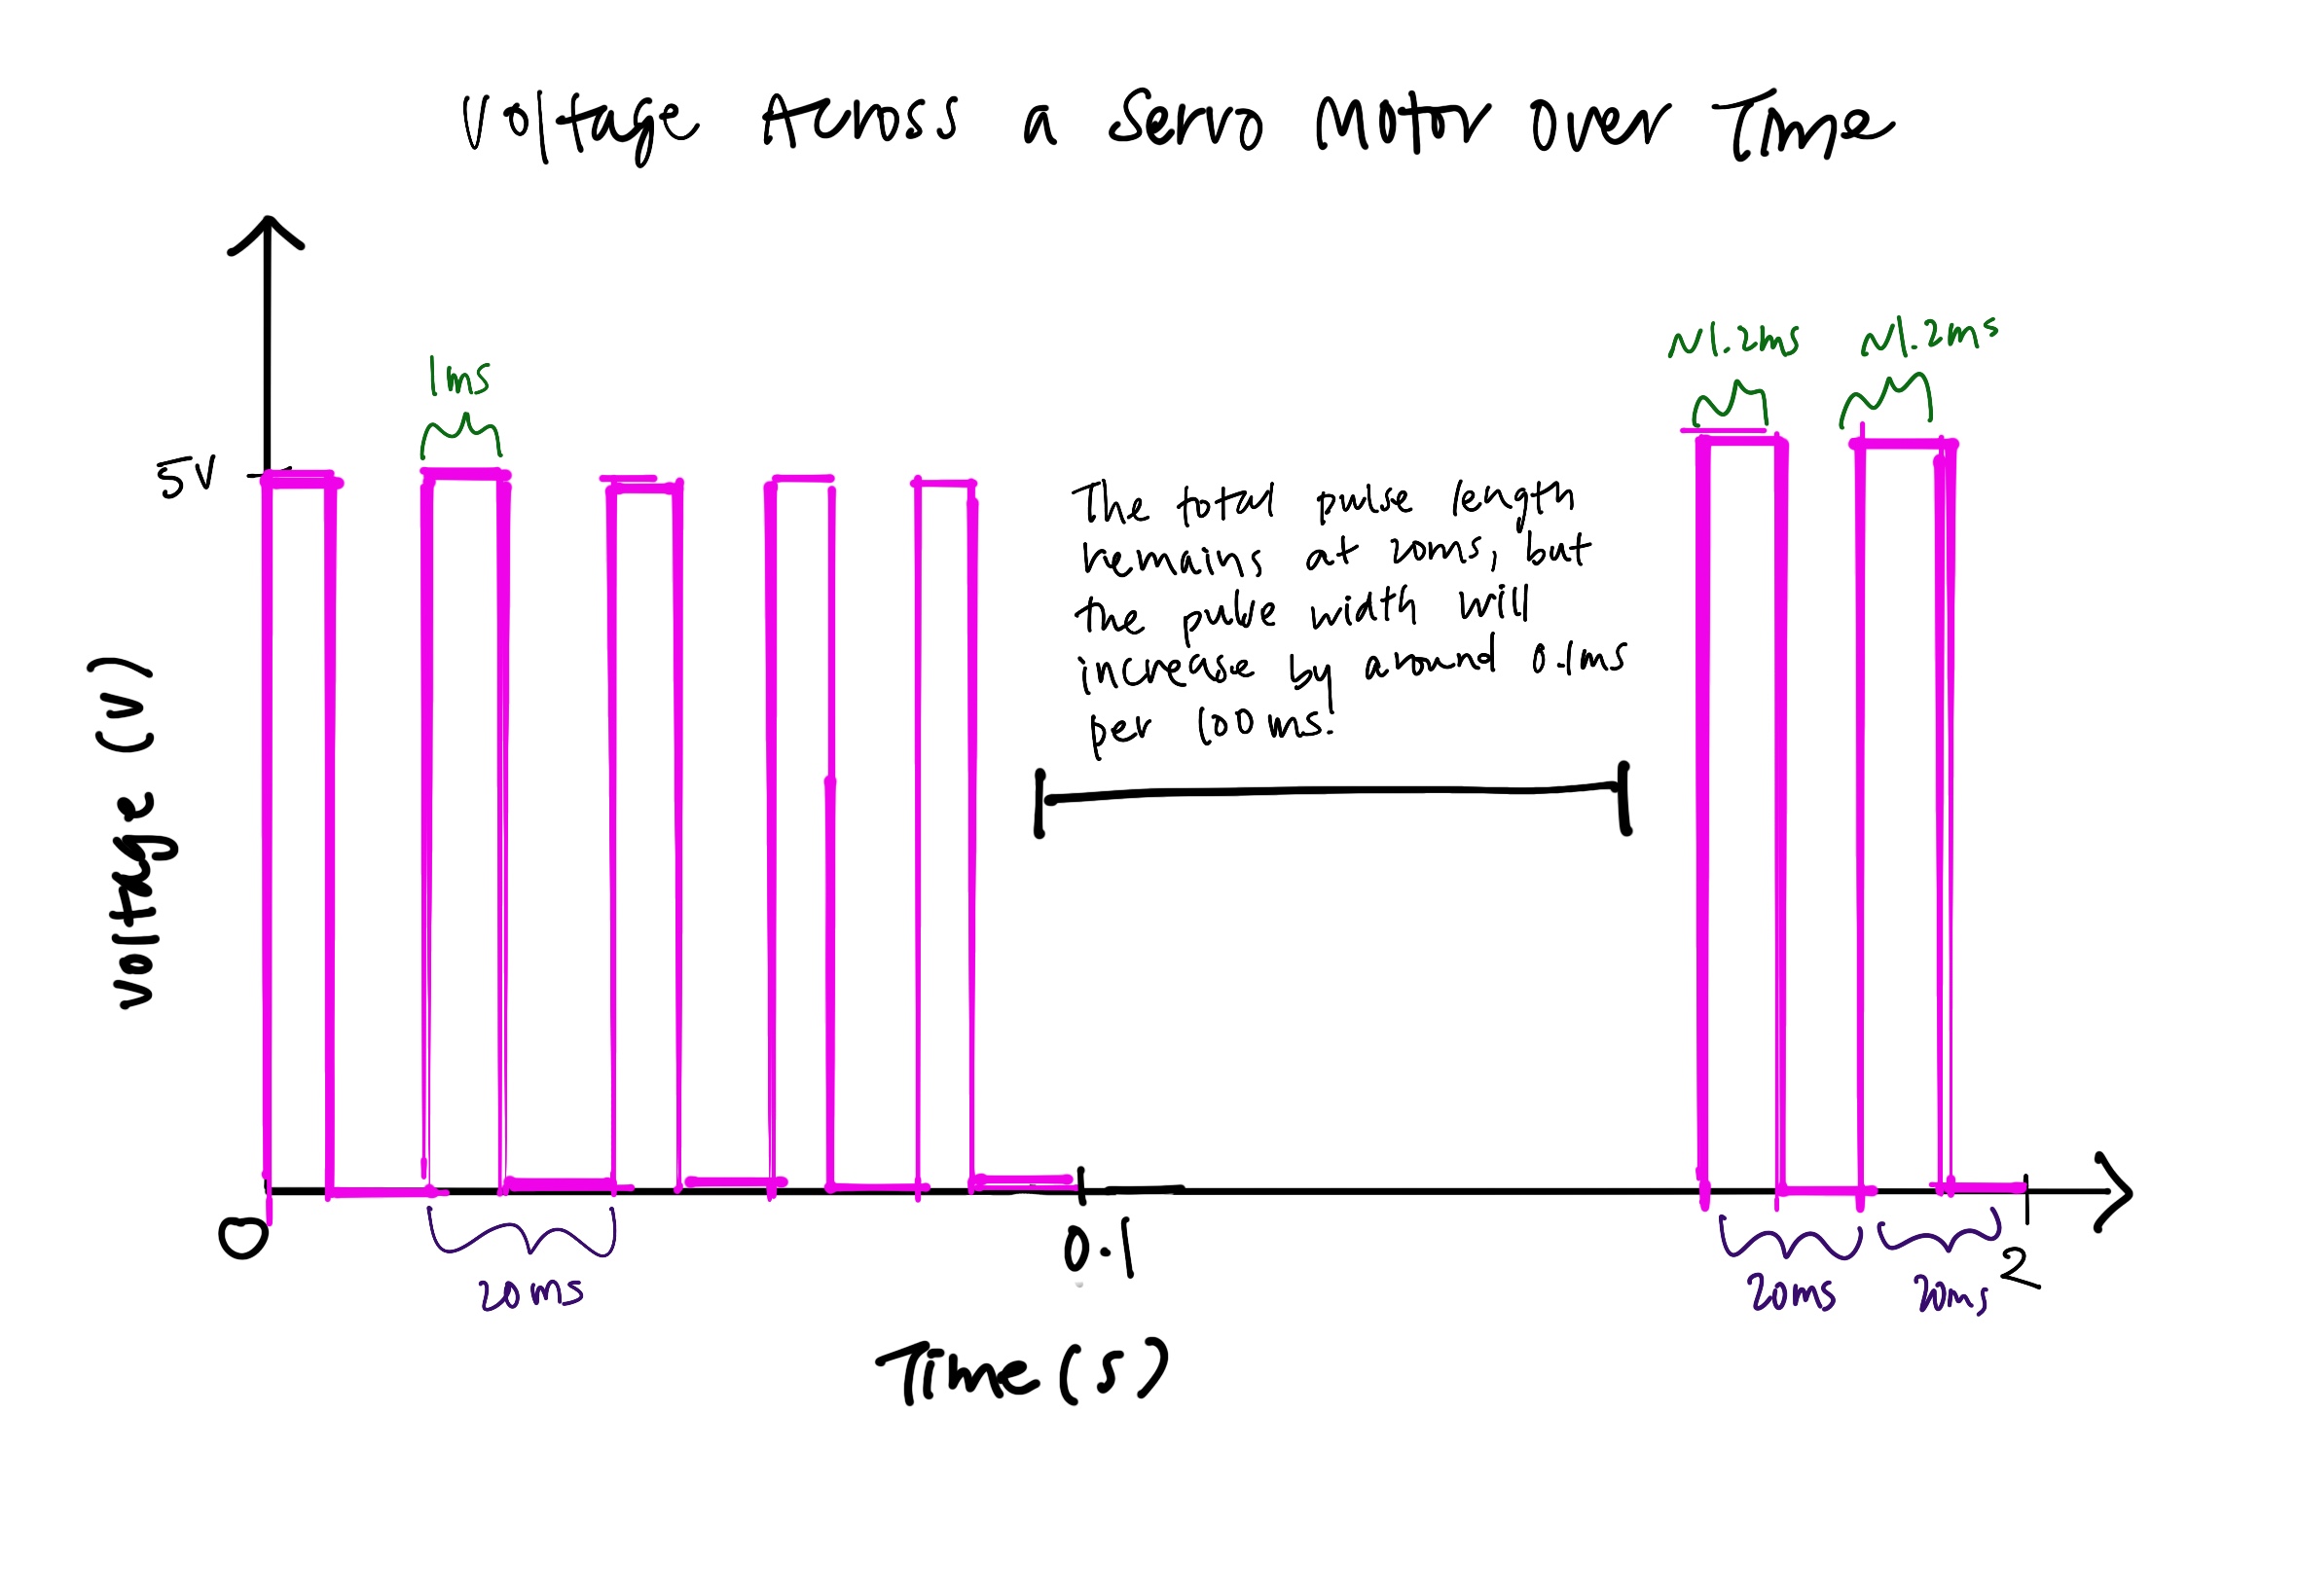 Voltage Across a Servo Motor over Time
1ms
~1.2ms
~1.2ms
5V
The total pulse length
remains at 20ms, but
the pulse width will
increase by around 0.1ms
per 100ms.
Voltage (V)
0
0.1
2
20ms
20ms
20ms
Time (s)